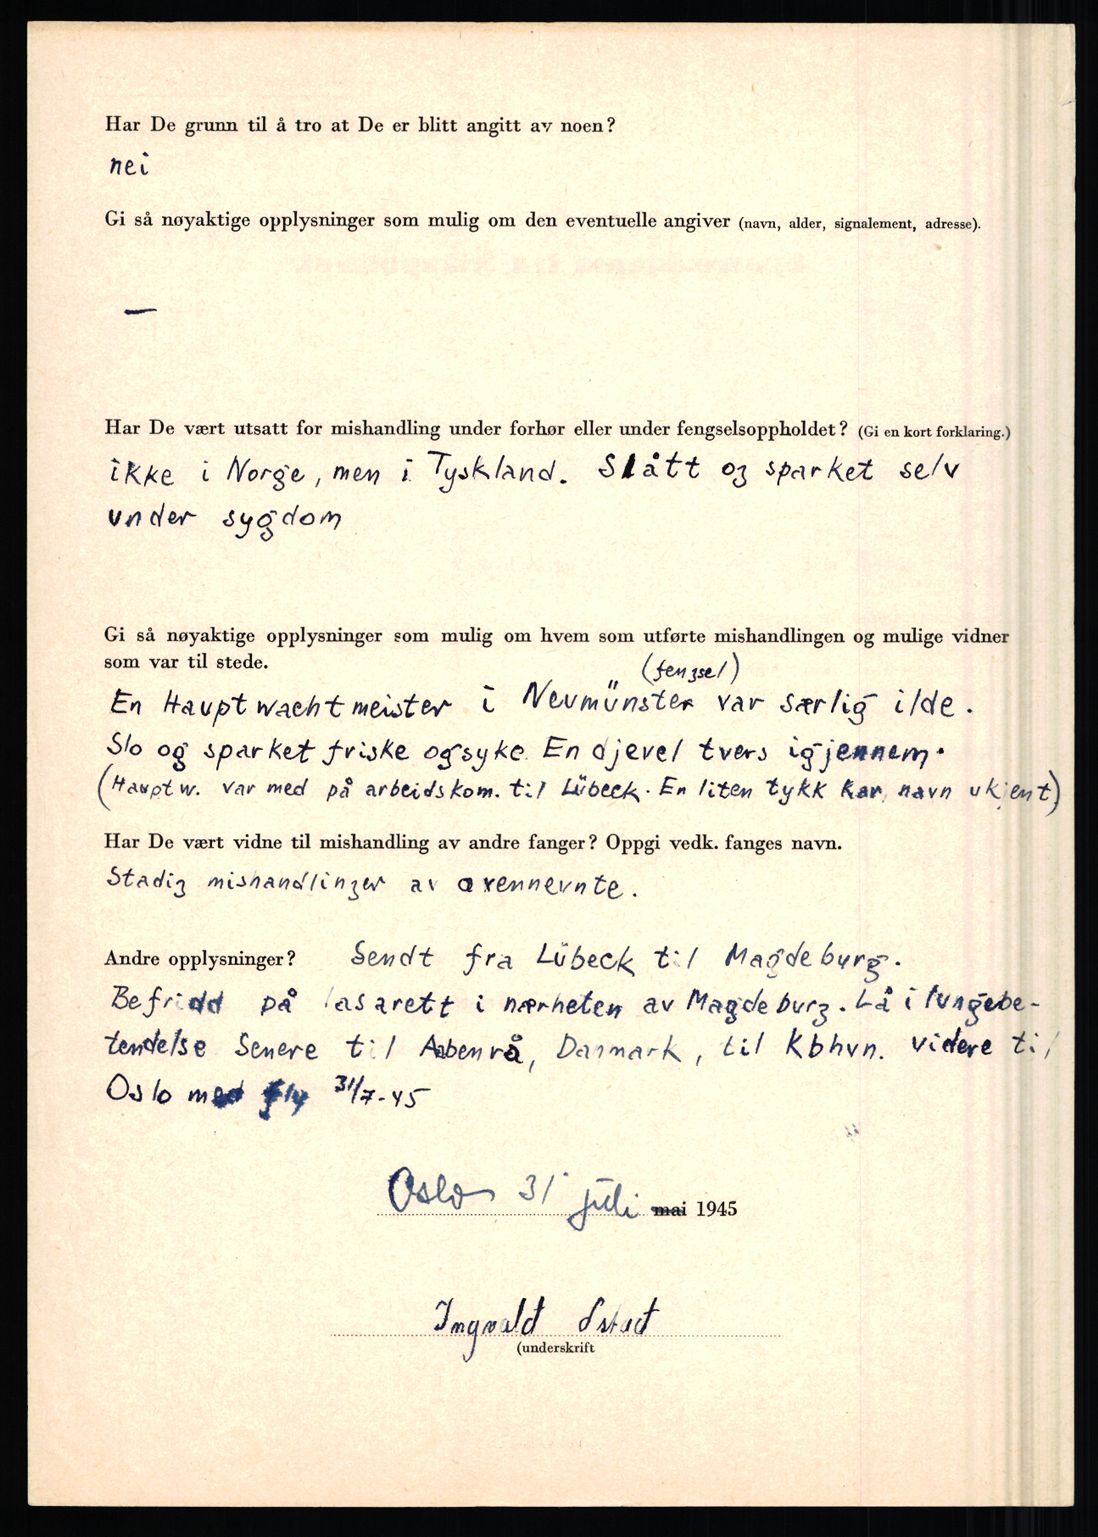 Har De grunn til å tro at De er blitt angitt av noen?
nei
Gi så nøyaktige opplysninger som mulig om den eventuelle angiver (navn, alder, signalement, adresse).
—
Har De vært utsatt for mishandling under forhør eller under fengselsoppholdet? (Gi en kort forklaring.)
ikke i Norge, men i Tyskland. Slått og sparket selv
under sygdom
Gi så nøyaktige opplysninger som mulig om hvem som utførte mishandlingen og mulige vidner
som var til stede.
(fengsel)
En Hauptwachtmeister i Neumünster var særlig ilde.
Slo og sparket friske og syke. En djevel tvers igjennem.
(Hauptw. var med på arbeidskom. til Lübeck. En liten tykk kar, navn ukjent)
Har De vært vidne til mishandling av andre fanger? Oppgi vedk. fanges navn.
Stadig mishandlinger av ovennevnte.
Andre opplysninger? Sendt fra Lübeck til Magdeburg.
Befridd på lasarett i nærheten av Magdeburg. Lå i lungebe-
tendelse Senere til Aabenrå, Danmark, til Kbhvn. videre til
Oslo med fly 31/7-45
Oslo 31 juli mai 1945
Ingvald
(underskrift